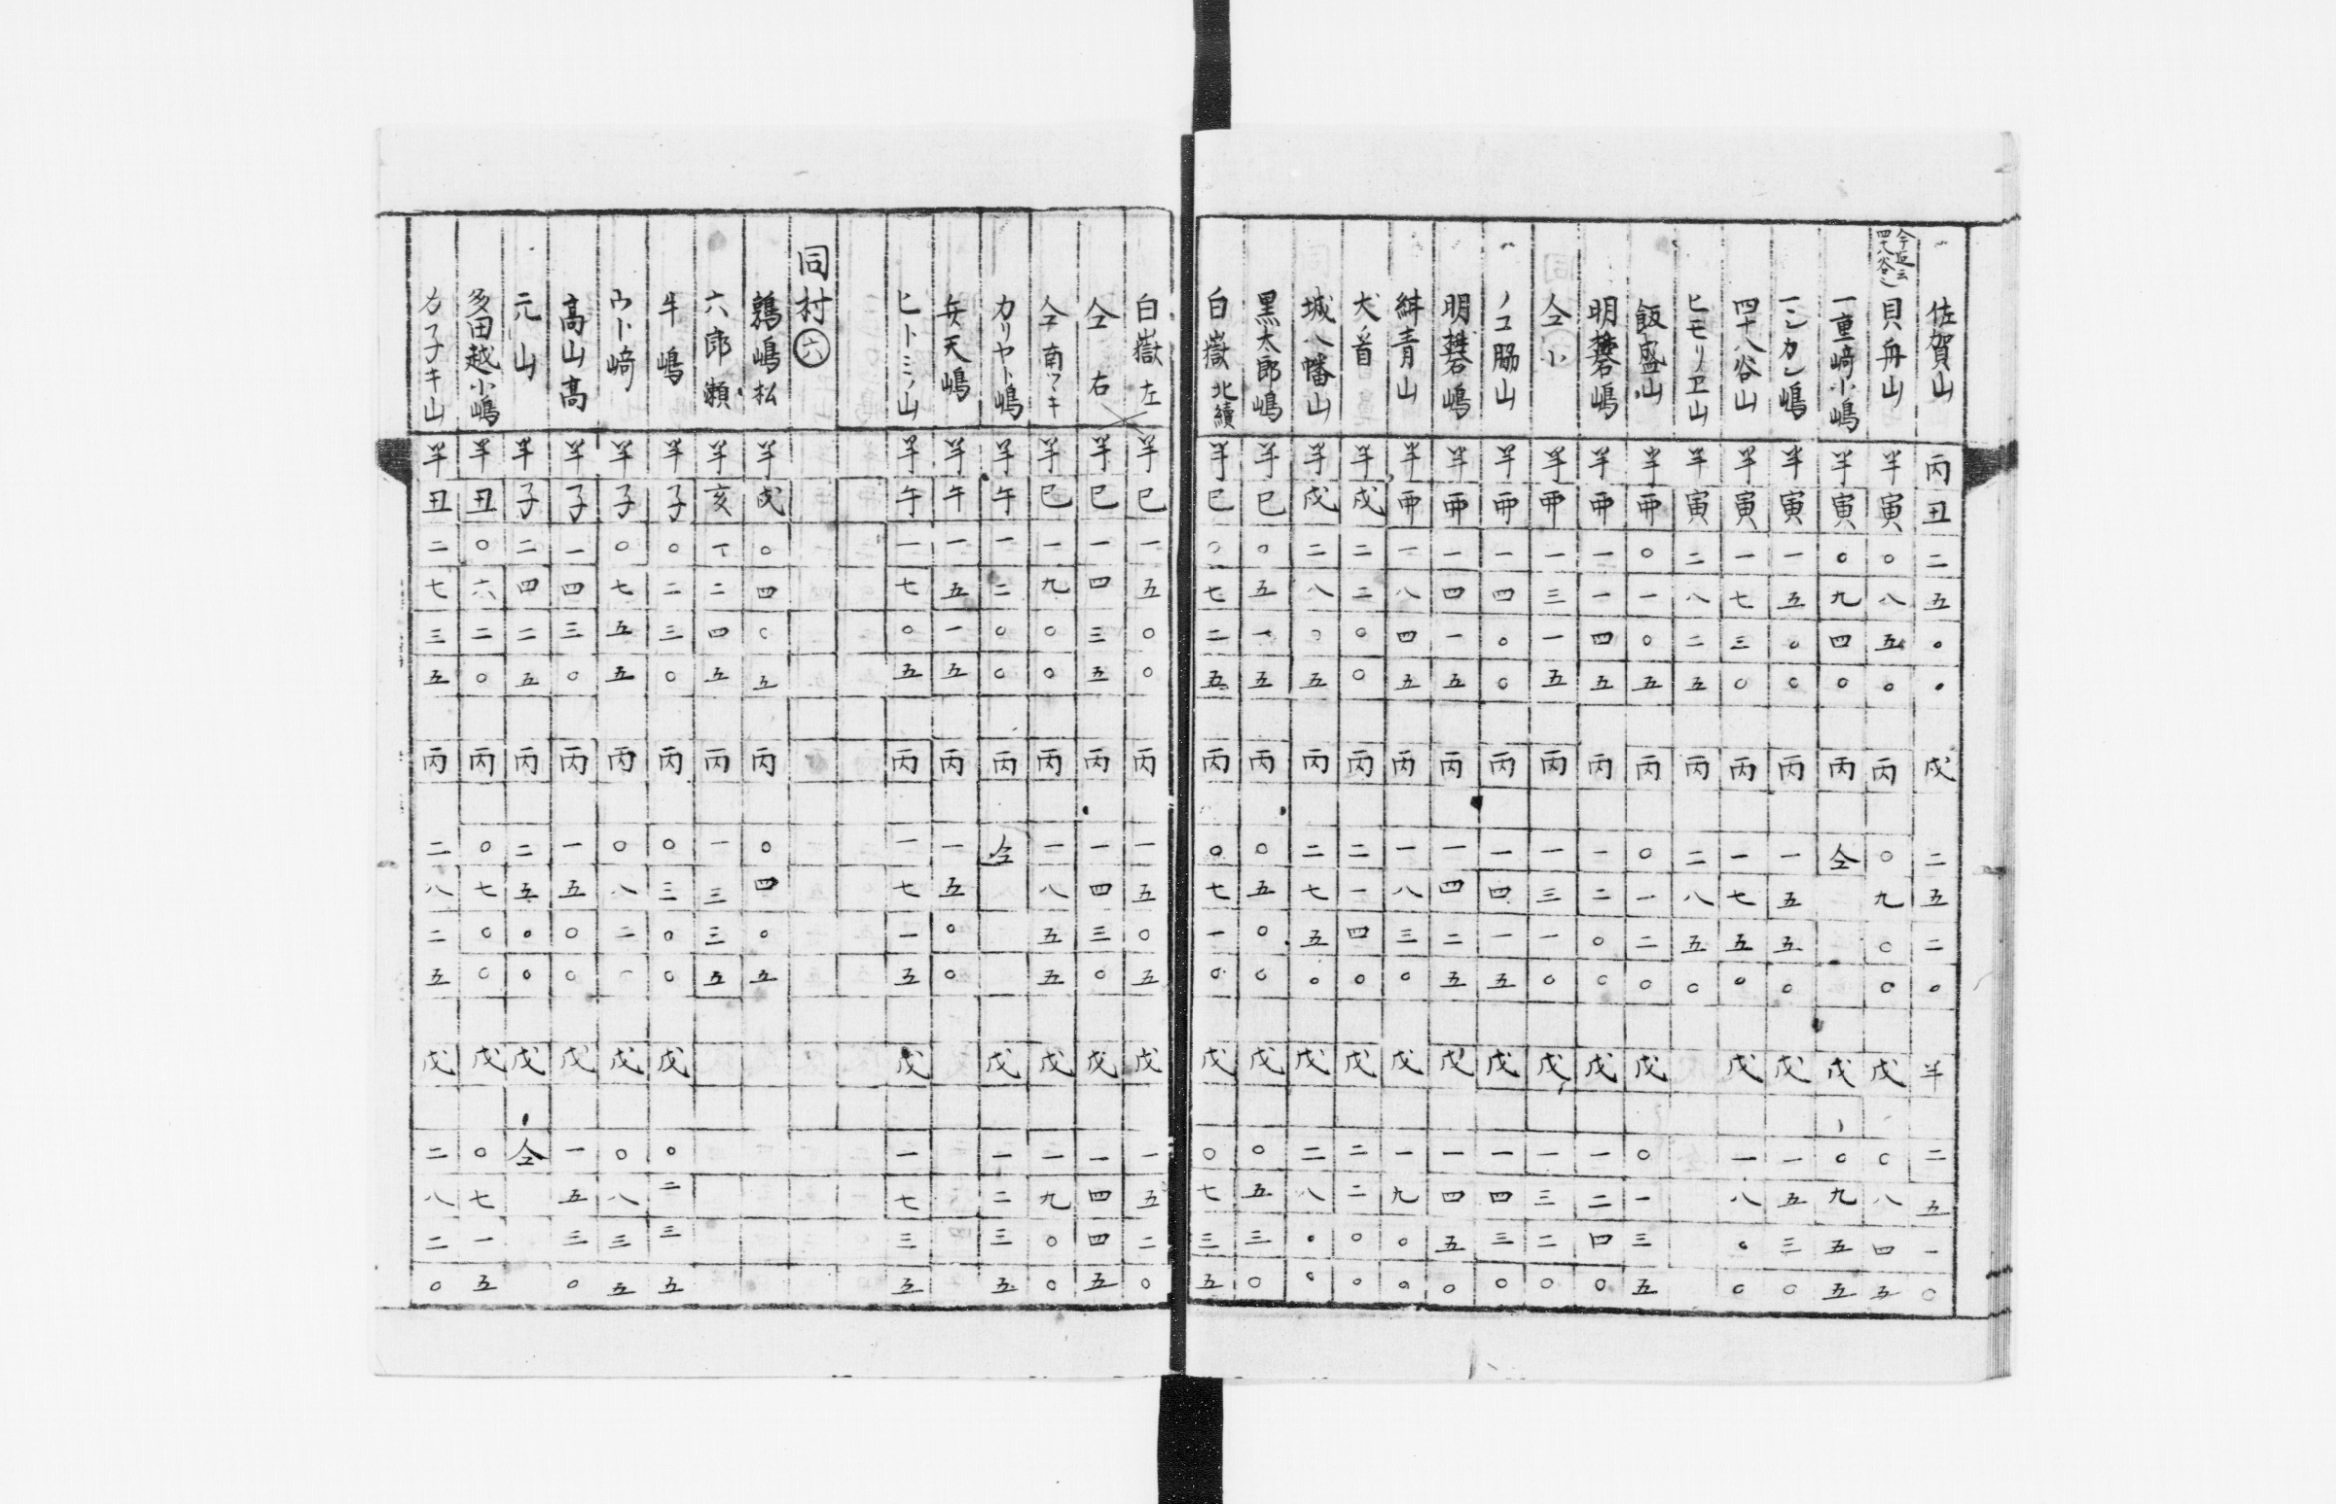 佐賀山 丙 丑 二 五 〇 〇 戊 二 五 二 〇 半 二 五 一 〇
貝舟山 半 寅 〇 八 五 〇 丙 〇 九 〇 〇 戊 〇 八 四 五
一重﨑小嶋 半 寅 〇 九 四 〇 丙 仝 戊 〇 九 五 五
ニシカン嶋 半 寅 一 五 〇 〇 丙 一 五 五 〇 戊 一 五 三 〇
四十八谷山 半 寅 一 七 三 〇 丙 一 七 五 〇 戊 一 八 〇 〇
ヒモリノヱ山 半 寅 二 八 二 五 丙 二 八 五 〇
飯盛山 半 丣 〇 一 〇 五 丙 〇 一 二 〇 戊 〇 一 三 五
明礬嶋 半 丣 一 一 四 五 丙 一 二 〇 〇 戊 一 二 四 〇
仝小 半 丣 一 三 一 五 丙 一 三 一 〇 戊 一 三 二 〇
ノコ脇山 半 丣 一 四 〇 〇 丙 一 四 一 五 戊 一 四 三 〇
明礬嶋 半 丣 一 四 一 五 丙 一 四 二 五 戊 一 四 五 〇
青山 半 丣 一 八 四 五 丙 一 八 三 〇 戊 一 九 〇 〇
犬首 半 戌 二 二 〇 〇 丙 二 一 四 〇 戊 二 二 〇 〇
城八幡山 半 戌 二 八 〇 五 丙 二 七 五 〇 戊 二 八 〇 〇
黒太郎嶋 半 巳 〇 五 一 五 丙 〇 五 〇 〇 戊 〇 五 三 〇
白嶽北續 半 巳 〇 七 二 五 丙 〇 七 一 〇 戊 〇 七 三 五
白嶽左 半 巳 一 五 〇 〇 丙 一 五 〇 五 戊 一 五 二 〇
仝右 半 巳 一 四 三 五 丙 一 四 三 〇 戊 一 四 四 五
仝南ワキ 半 巳 一 九 〇 〇 丙 一 八 五 五 戊 一 九 〇 〇
カリヤト嶋 半 午 一 二 〇 〇 丙 仝 戊 一 二 三 五
弁天嶋 半 午 一 五 一 五 丙 一 五 〇 〇
ヒトミノ山 半 午 一 七 〇 五 丙 一 七 一 五 戊 一 七 三 五
同村㊅
鶏嶋松 半 戌 〇 四 〇 五 丙 〇 四 〇 五
六郎瀬 半 亥 一 二 四 五 丙 一 三 三 五
牛嶋 半 子 〇 二 三 〇 丙 〇 三 〇 〇 戊 〇 二 三 五
ウト﨑 半 子 〇 七 五 五 丙 〇 八 二 〇 戊 〇 八 三 五
高山高 半 子 一 四 三 〇 丙 一 五 〇 〇 戊 一 五 三 〇
元山 半 子 二 四 二 五 丙 二 五 〇 〇 戊 仝
多田越小嶋 半 丑 〇 六 二 〇 丙 〇 七 〇 〇 戊 〇 七 一 五
カ子キ山 半 丑 二 七 三 五 丙 二 八 二 五 戊 二 八 二 〇